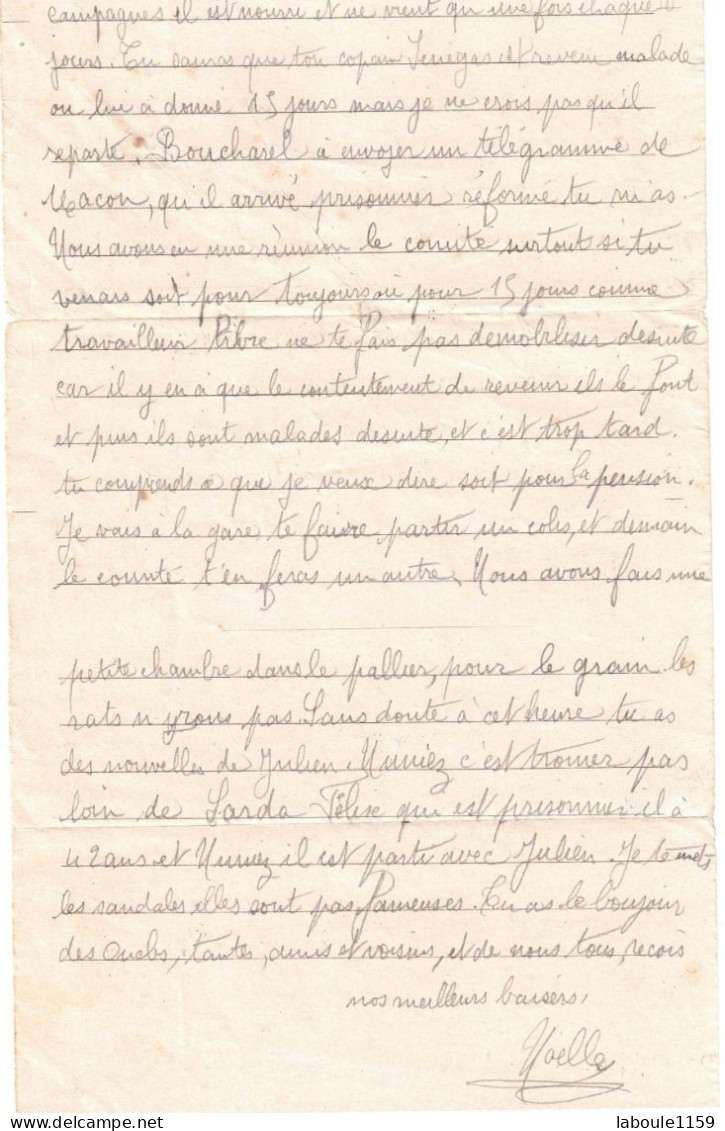 campagnes il est nourri et ne vient qu'une fois chaque 8
jours. Tu sauras que ton copain Senegas est revenu malade
on lui à donné 15 jours mais je ne crois pas qu'il
reparte, Boucharel à envoyer un télégramme de
Macon, qu'il arrivé prisonnier réformé tu m'as.
Nous avons eu une réunion le comité surtout si tu
venais soit pour toujours où pour 15 jours comme
travailleur libre ne te fais pas demobiliser desuite
car il y en à que le contentement de revenir ils le font
et puis ils sont malades desuite, et c'est trop tard.
tu comprends ce que je veux dire soit pour la pension.
Je vais à la gare te faire partir un colis, et demain
le comité t'en feras un autre. Nous avons fais une
petite chambre dans le pallier, pour le grain les
rats n'yrons pas. Sans doute à cet heure tu as
des nouvelles de Julien Muniez c'est trouver pas
loin de Sarda Félix qui est prisonnier il à
42 ans et Muniez il est parti avec Julien. Je te mets
les sandales elles sont pas fameuses. Tu as le boujour
des Oncles, tantes, amis et voisins, et de nous tous, recois
nos meilleurs baisers,
Noelle
laboule1159
DELCAMPE.NET